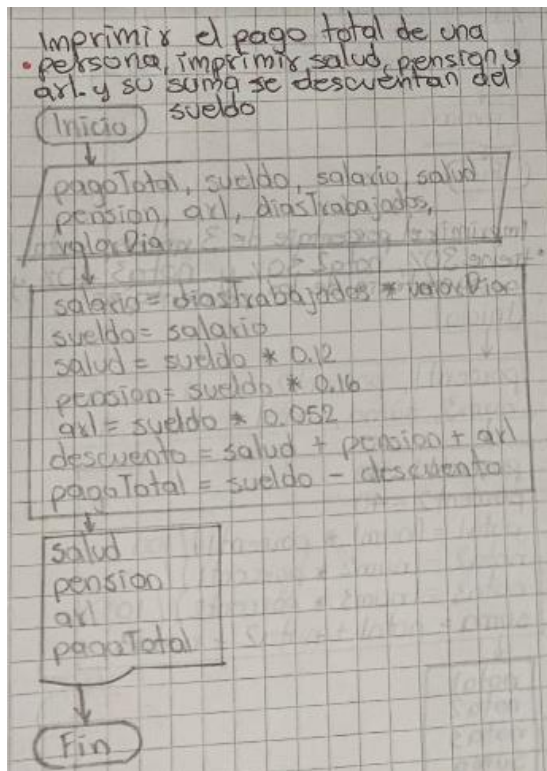 Imprimir el pago total de una
persona, imprimir salud, pension y
arl. y su suma se descuentan del
sueldo
Inicio
pagoTotal, sueldo, salario, salud
pension, arl, diasTrabajados,
valorDia
salario = diasTrabajados * valorDia
sueldo = salario
salud = sueldo * 0.12
pension = sueldo * 0.16
arl = sueldo * 0.052
descuento = salud + pension + arl
pagoTotal = sueldo - descuento
salud
pension
arl
pagoTotal
Fin